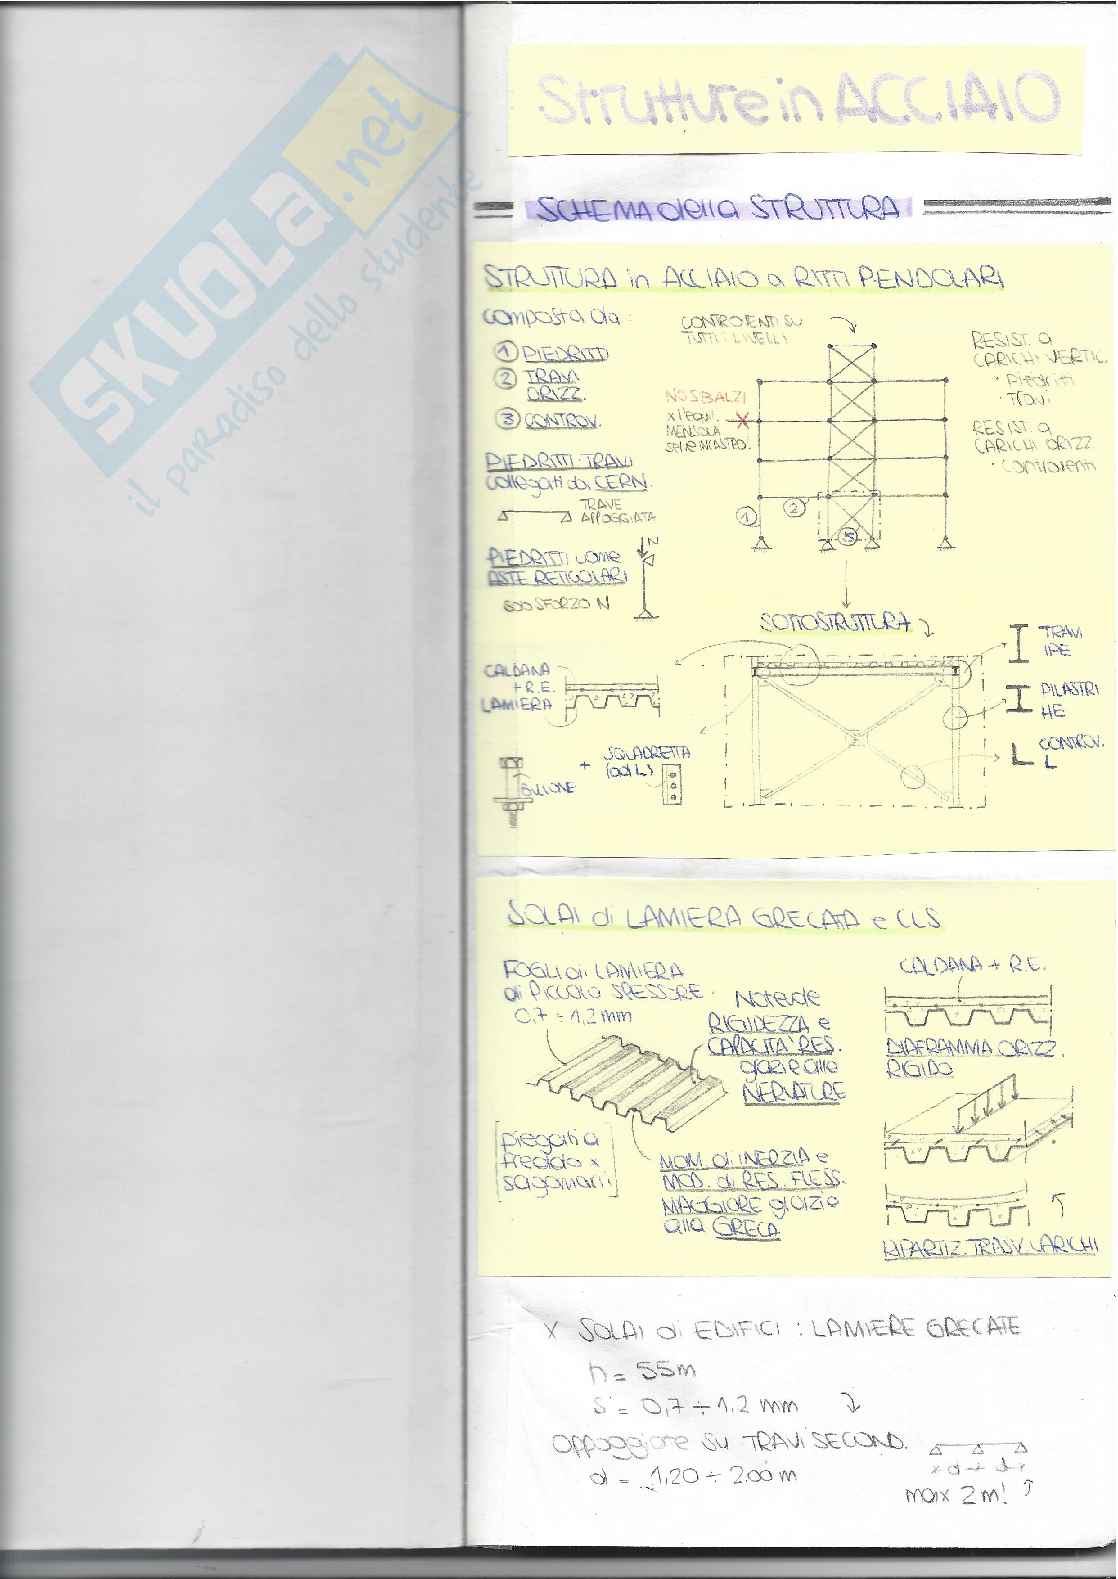 SKUOLA.net
il paradiso dello studente
Strutture in ACCIAIO
SCHEMA della STRUTTURA
STRUTTURA in ACCIAIO a RITTI PENDOLARI
composta da:
① PIEDRITTI
② TRAVI
ORIZZ.
③ CONTROV.
PIEDRITTI-TRAVI
collegati da CERN.
TRAVE
APPOGGIATA
PIEDRITTI come
ASTE RETICOLARI
solo SFORZO N
N
CONTROVENTI SU
TUTTI I LIVELLI
NO SBALZI
x l'EQUIL.
MENSOLA
SERVE INCASTRO.
1
2
3
RESIST. a
CARICHI VERTIC.
• Piedritti
• Travi
RESIST. a
CARICHI ORIZZ
• Controventi
SOTTOSTRUTTURA
CALDANA
+ R.E.
LAMIERA
BULLONE
+ SQUADRETTA
(ad L)
TRAVI
IPE
PILASTRI
HE
CONTROV.
L
SOLAI di LAMIERA GRECATA e CLS
FOGLI di LAMIERA
di PICCOLO SPESSORE
0,7 ÷ 1,2 mm
[piegati a
freddo x
sagomarli]
Notevole
RIGIDEZZA e
CAPACITA' RES.
grazie alle
NERVATURE
MOM. di INERZIA e
MOD. di RES. FLESS.
MAGGIORE grazie
alla GRECA
CALDANA + R.E.
DIAFRAMMA ORIZZ.
RIGIDO
RIPARTIZ. TRASV. CARICHI
x SOLAI di EDIFICI : LAMIERE GRECATE
h = 55m
s = 0,7 ÷ 1.2 mm
appoggiare su TRAVI SECOND.
d = 1.20 ÷ 2.00 m
max 2 m!